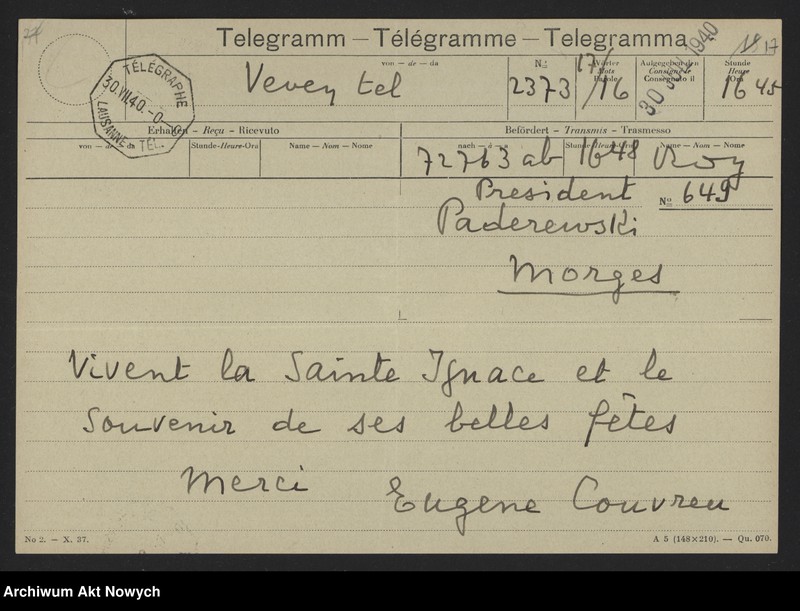 Telegramm — Télégramme — Telegramma
1940
17
von — de — da
Vevey tel
No
2373
Wörter
Mots
Parole
17/16
Aufgegeben den
Consigné le
Consegnato il
30
Stunde
Heure
Ora
16 45
TÉLÉGRAPHE
30.VII.40.-0
LAUSANNE TÉL.
Erhalten - Reçu - Ricevuto
von — de — da
Stunde-Heure-Ora
Name — Nom — Nome
Befördert - Transmis - Trasmesso
nach — à — a
72763 ab
Stunde-Heure-Ora
1648
Name — Nom — Nome
Roy
President
No 649
Paderewski
Morges
Vivent la Sainte Ignace et le
souvenir de ses belles fêtes
Merci Eugene Couvreu
No 2. — X. 37.
A 5 (148×210). — Qu. 070.
Archiwum Akt Nowych